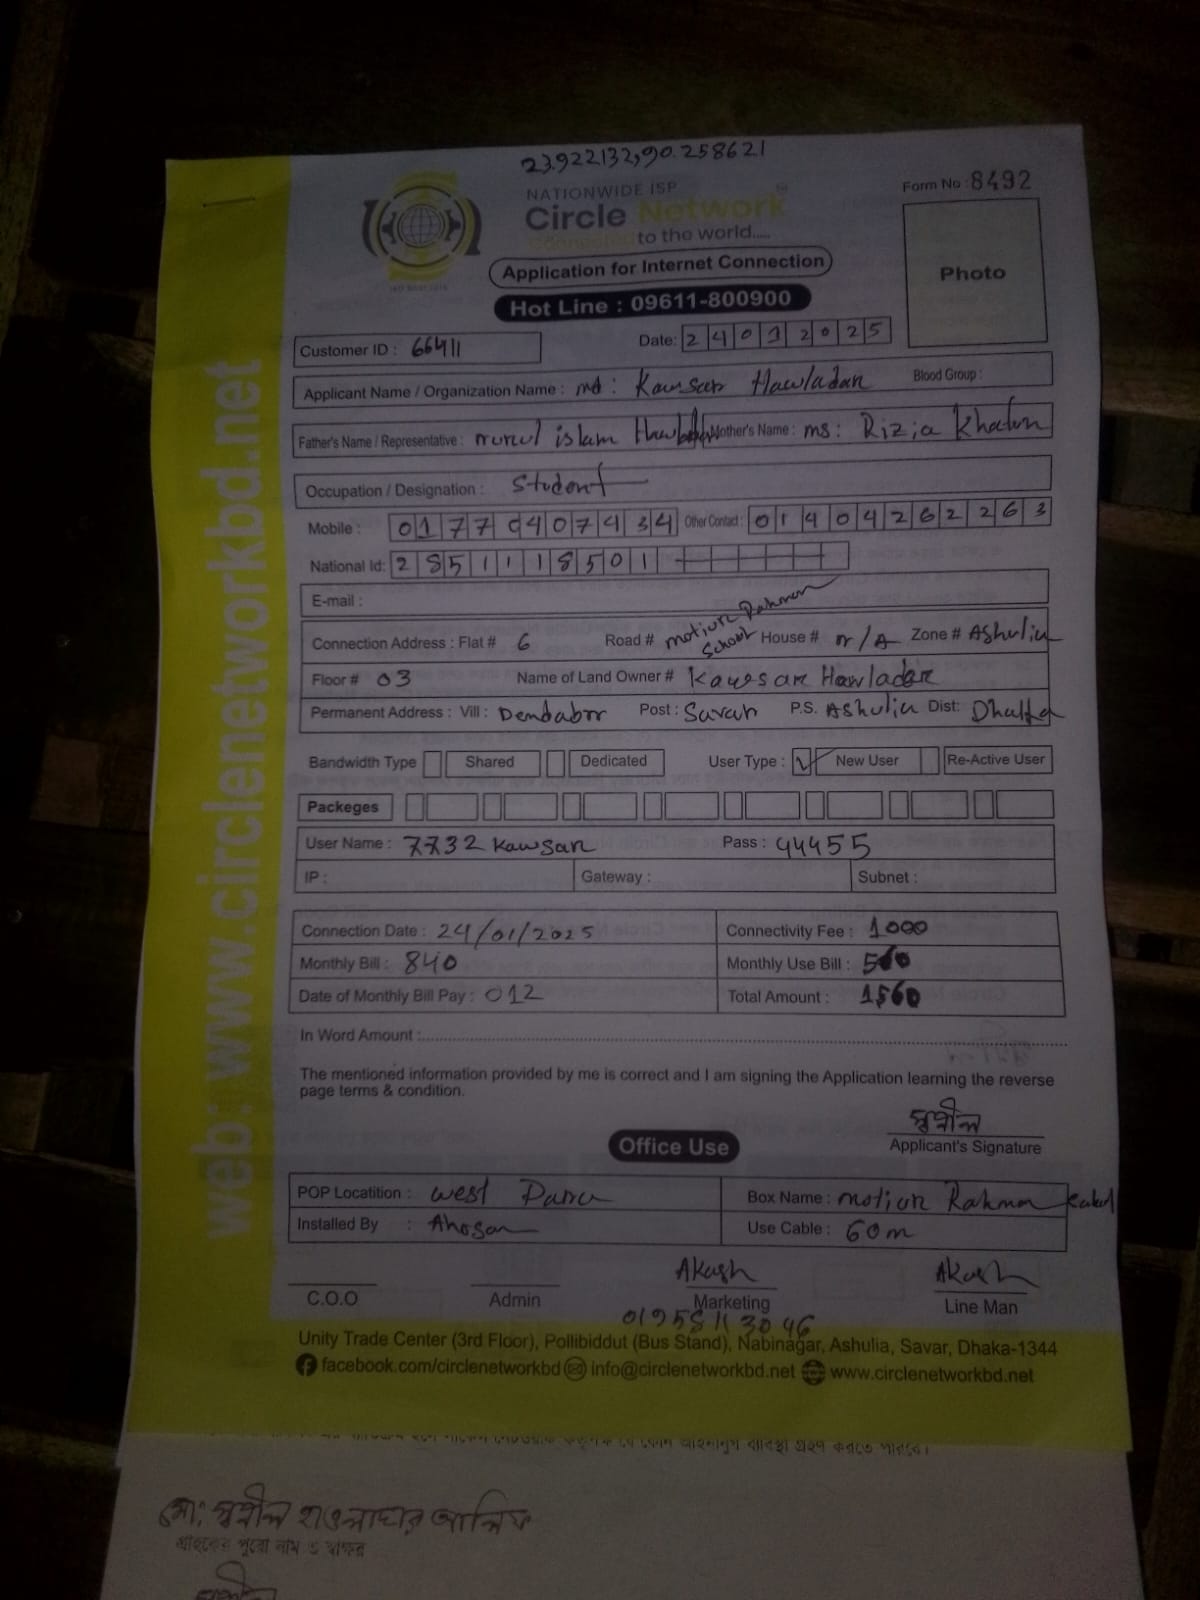 23.922132,90.258621
NATIONWIDE ISP
Form No : 8492
Circle Network
Connected to the world.....
Application for Internet Connection
Photo
Hot Line : 09611-800900
Customer ID : 66411
Date: 24012025
Applicant Name / Organization Name : md: Kawsar Hawladar
Blood Group :
Father's Name / Representative : nurul islam
Mother's Name : ms: Rizia Khatun
Occupation / Designation : Student
Mobile : 01770407434 Other Contact : 01404262263
National Id: 2851118501
E-mail :
Connection Address : Flat # 6 Road # motiur Rahman School House # n/A Zone # Ashulia
Floor # 03 Name of Land Owner # Kawsar Hawladar
Permanent Address : Vill : Dendabor Post : Savar P.S. Ashulia Dist: Dhaka
Bandwidth Type Shared Dedicated User Type : ✓ New User Re-Active User
Packeges
User Name : 7732 Kawsar Pass : 44455
IP : Gateway : Subnet :
Connection Date : 24/01/2025 Connectivity Fee : 1000
Monthly Bill : 840 Monthly Use Bill : 560
Date of Monthly Bill Pay : 012 Total Amount : 1560
In Word Amount :
The mentioned information provided by me is correct and I am signing the Application learning the reverse
page terms & condition.
Applicant's Signature
Office Use
POP Locatition : west Para Box Name : motiur Rahman
Installed By : Ahosan Use Cable : 60m
Akash Akash
C.O.O Admin Marketing Line Man
01958113046
Unity Trade Center (3rd Floor), Pollibiddut (Bus Stand), Nabinagar, Ashulia, Savar, Dhaka-1344
facebook.com/circlenetworkbd info@circlenetworkbd.net www.circlenetworkbd.net
web: www.circlenetworkbd.net
হাওলাদার আলিফ
গ্রাহকের পুরো নাম ও স্বাক্ষর